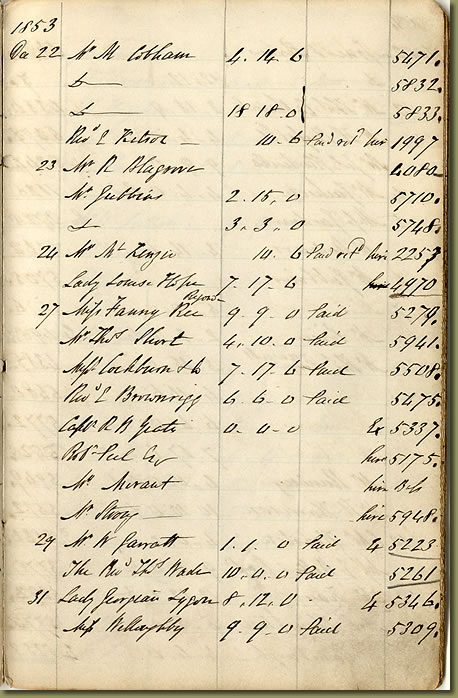 1853
Dec 22 Mr M Cobham 4. 14. 6 5471.
Do 5832.
Do 18 18. 0 5833.
Revd L 10. 6 Paid hire 1997
23 Mr R Blagrove 4080
Mr Gubbins 2. 15. 0 5710.
Do 3. 3. 0 5748.
24 Mr McKenzie 10. 6 Paid hire 2257
Lady Louisa 7. 17. 6 hire 4970
27 Miss Fanny Ree 9. 9. 0 Paid 5279.
Mr Thos Short 4. 10. 0 Paid 5941.
Cockburn & Co 7. 17. 6 Paid 5508.
Revd L Brownrigg 6. 6. 0 Paid 5475.
Captn R B 0. 0. 0 Ex 5337.
Robt Peel Esq hire 5175.
Mr Morant hire
Mr Strong hire 5948.
29 Mr W Garratt 1. 1. 0 Paid 5223
The Revd Thos Wade 10. 0. 0 Paid 5261
31 Lady Georgiana Lygon 8. 12. 0 5346.
Miss Willoughby 9. 9. 0 Paid 5309.